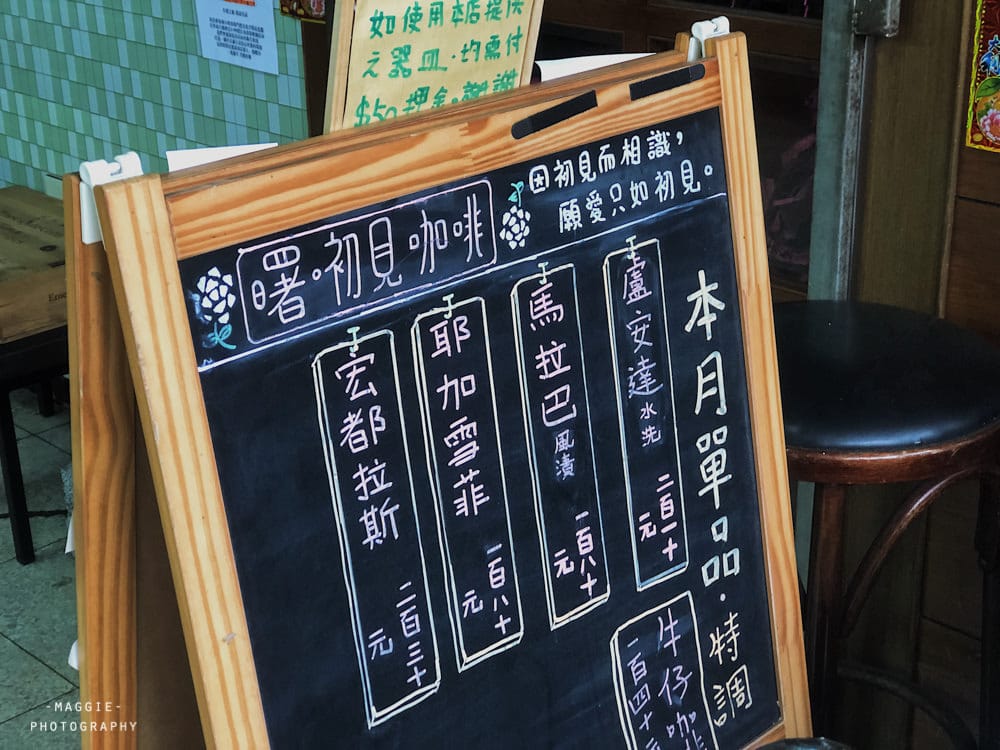 如使用本店提供
之器皿·均需付
$50押金。謝謝
因初見而相識，
願愛只如初見。
曙。初見咖啡
本月單品·特調
盧安達水洗
二百一十元
馬拉巴風漬
一百八十元
耶加雪菲
一百八十元
宏都拉斯
二百三十元
牛仔咖啡
一百四十元
-MAGGIE-
PHOTOGRAPHY